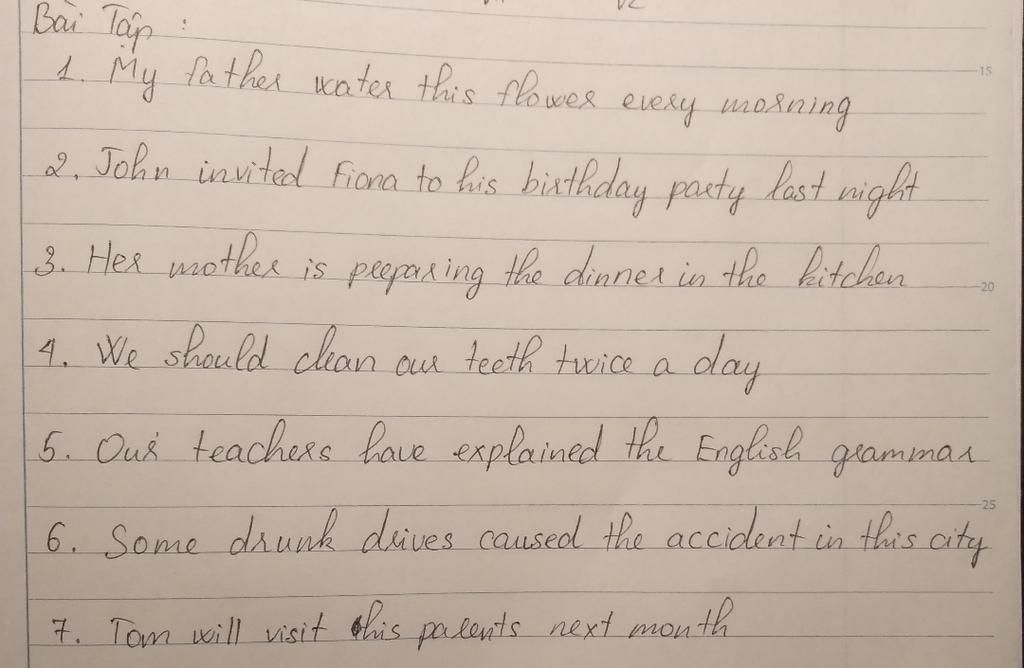 Bài Tập :
1. My father water this flower every morning
2. John invited Fiona to his birthday party last night
3. Her mother is preparing the dinner in the kitchen
4. We should clean our teeth twice a day
5. Our teachers have explained the English grammar
6. Some drunk drives caused the accident in this city
7. Tom will visit his parents next month
15
20
25